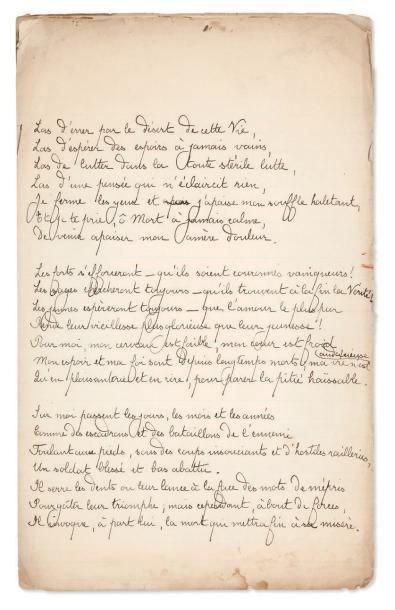 Las d'errer par le désert de cette Vie,
Las d'espérer des espoirs à jamais vains,
Las de lutter dans la toute stérile lutte,
Las d'une pensée qui n'éclaircit rien,
Je ferme les yeux et j'apaise mon souffle haletant,
Et je te prie, ô Mort à jamais calme,
De venir apaiser mon amère douleur.
Les forts s'efforceront – qu'ils soient couronnés vainqueurs!
Les Sages chercheront toujours – qu'ils trouvent à la fin la Vérité
Les jeunes espèreront toujours – que l'amour le plus pur
Rende leur vieillesse plus glorieuse que leur jeunesse!
Pour moi, mon cerveau est faible, mon cœur est froid
Mon espoir et ma foi sont depuis longtemps morts; ma vie n'est
Qu'en plaisanterie et en rire pour parer la pitié haïssable.
Sur moi passent les jours, les mois et les années
Comme des escadrons et des bataillons de l'ennemi
Foulant aux pieds, sous des coups insouciants et d'hostiles railleries,
Un soldat blessé et bas abattu.
Il serre les dents ou leur lance à la face des mots de mépris
Pour gâter leur triomphe; mais cependant, à bout de forces,
Il invoque, à part lui, la mort qui mettra fin à sa misère.